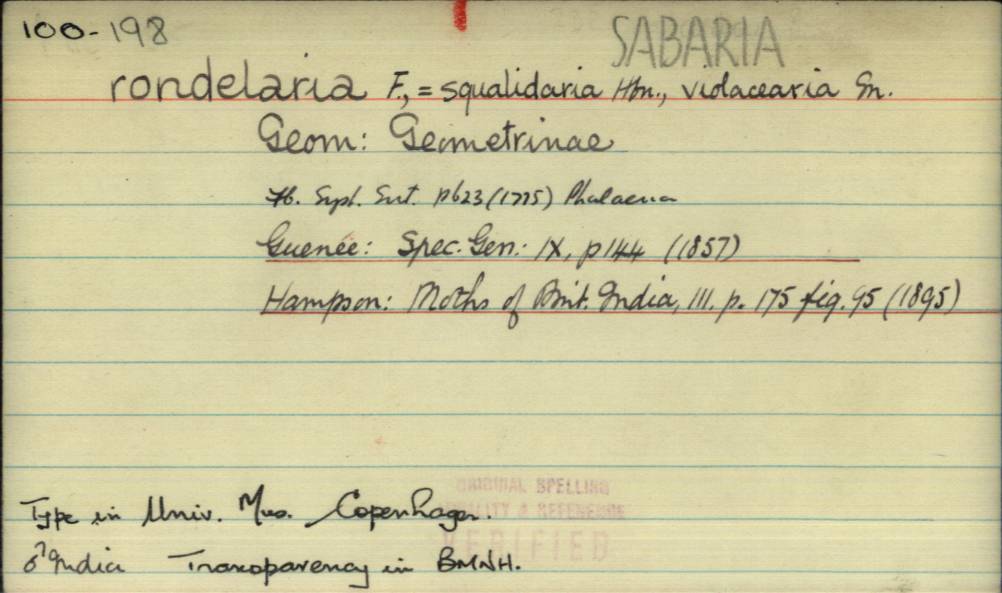 100-198
SABARIA
rondelaria F., = squalidaria Hbn., violacearia Gn.
Geom: Geometrinae
Fb. Syst. Ent. p623 (1775) Phalaena
Guenée: Spec. Gen: IX, p144 (1857)
Hampson: Moths of Brit. India, III. p. 175 fig. 95 (1895)
ORIGINAL SPELLING
LOCALITY & REFERENCE
VERIFIED
Type in Univ. Mus. Copenhagen.
♂ India Transparency in BMNH.